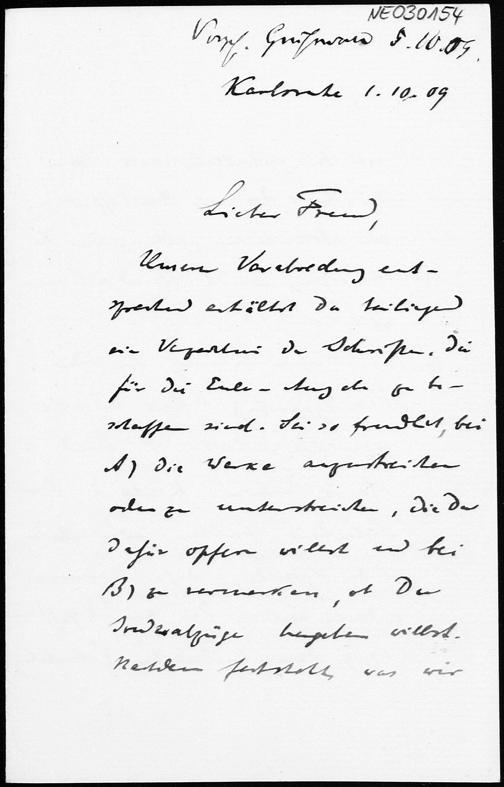 NE030154
Greifswald 5.10.09.
Karlsruhe 1.10.09
Lieber Freund,
Unserer Verabredung ent-
sprechend erhältst Du beiliegend
ein Verzeichnis der Schriften, die
für die Euler-Ausgabe zu be-
schaffen sind. Sei so freundlich, bei
A) die Werke anzustreichen
oder zu unterstreichen, die Du
dafür opfern willst und bei
B) zu vermerken, ob Du
Sonderabzüge hergeben willst.
Nachdem feststeht, was wir